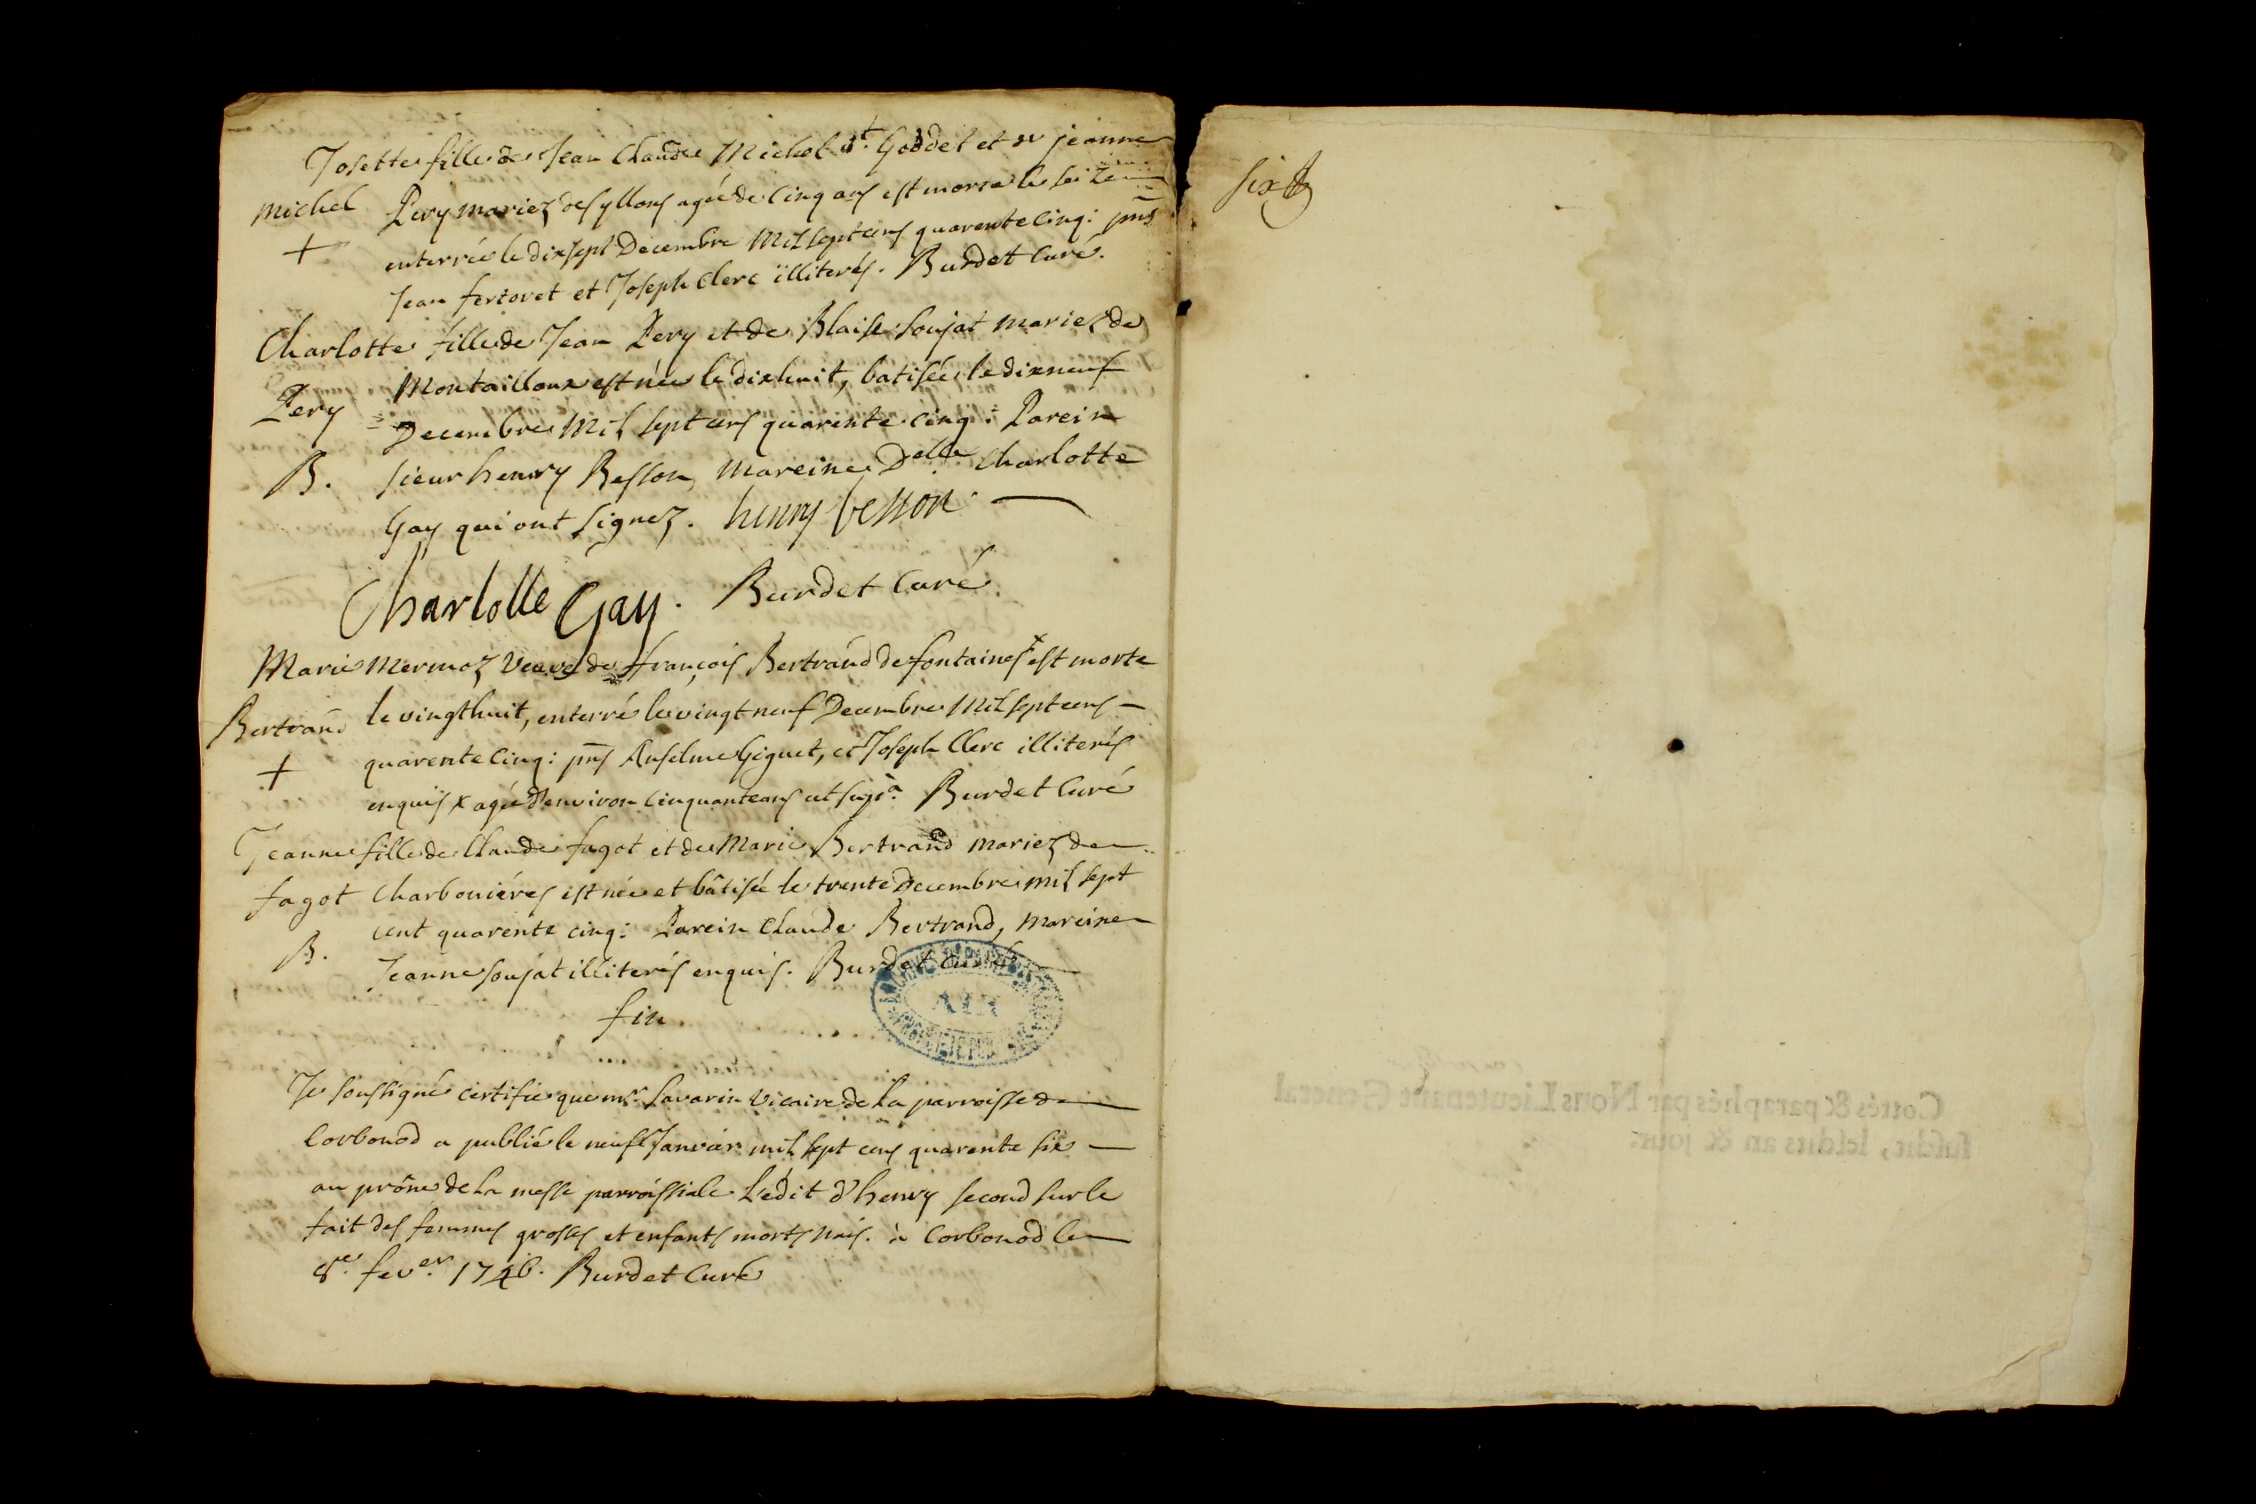 Josette fille de Jean Claude Michel dt. Goddet et de jeanne
michel Pery mariez des yllons agée de cinq ans est morte le seize
+ enterrée le dixsept Decembre Mil sept cens quarente cinq: pns
Jean fertoret et Joseph Clerc illiterés. Burdet Curé.
Charlotte fille de Jean Pery et de Blaise Soujat mariez de
Montailloux est née le dixhuit, batisée le dixneuf
Pery Decembre Mil sept cens quarente cinq: Parein
B. sieur henry Besson, Mareine Delle Charlotte
Gay qui ont signez. henry besson
Charlotte Gay. Burdet Curé.
Marie Mermoz veuve de françois Bertrand de fontaines x est morte
Bertrand le vingthuit, enterré le vingt neuf Decembre Mil sept cens
+ quarente cinq: pns Anselme Giguet, et Joseph Clerc illiterés
enquis x agée d'environ cinquante ans ut supra. Burdet Curé
Jeanne fille de Claude fagot et de Marie Bertrand mariez de
fagot Charboniéres est née et bâtisée le trente Decembre mil sept
cent quarente cinq: Parein Claude Bertrand, mareine
B. Jeanne soujat illiterés enquis. Burdet Curé
fin
AIN
Je soussigné certifie que mr. Savarin vicaire de la parroisse de
Corbonod a publié le neuf Janvier mil sept cens quarente six
au prône de la messe parroissiale L'édit d'henry second sur le
fait des femmes grosses et enfants morts nais. à Corbonod le
8e. fever. 1746. Burdet Curé
six
Cottés & paraphés par Nous Lieutenant General
susdit, lesdits an & jour.